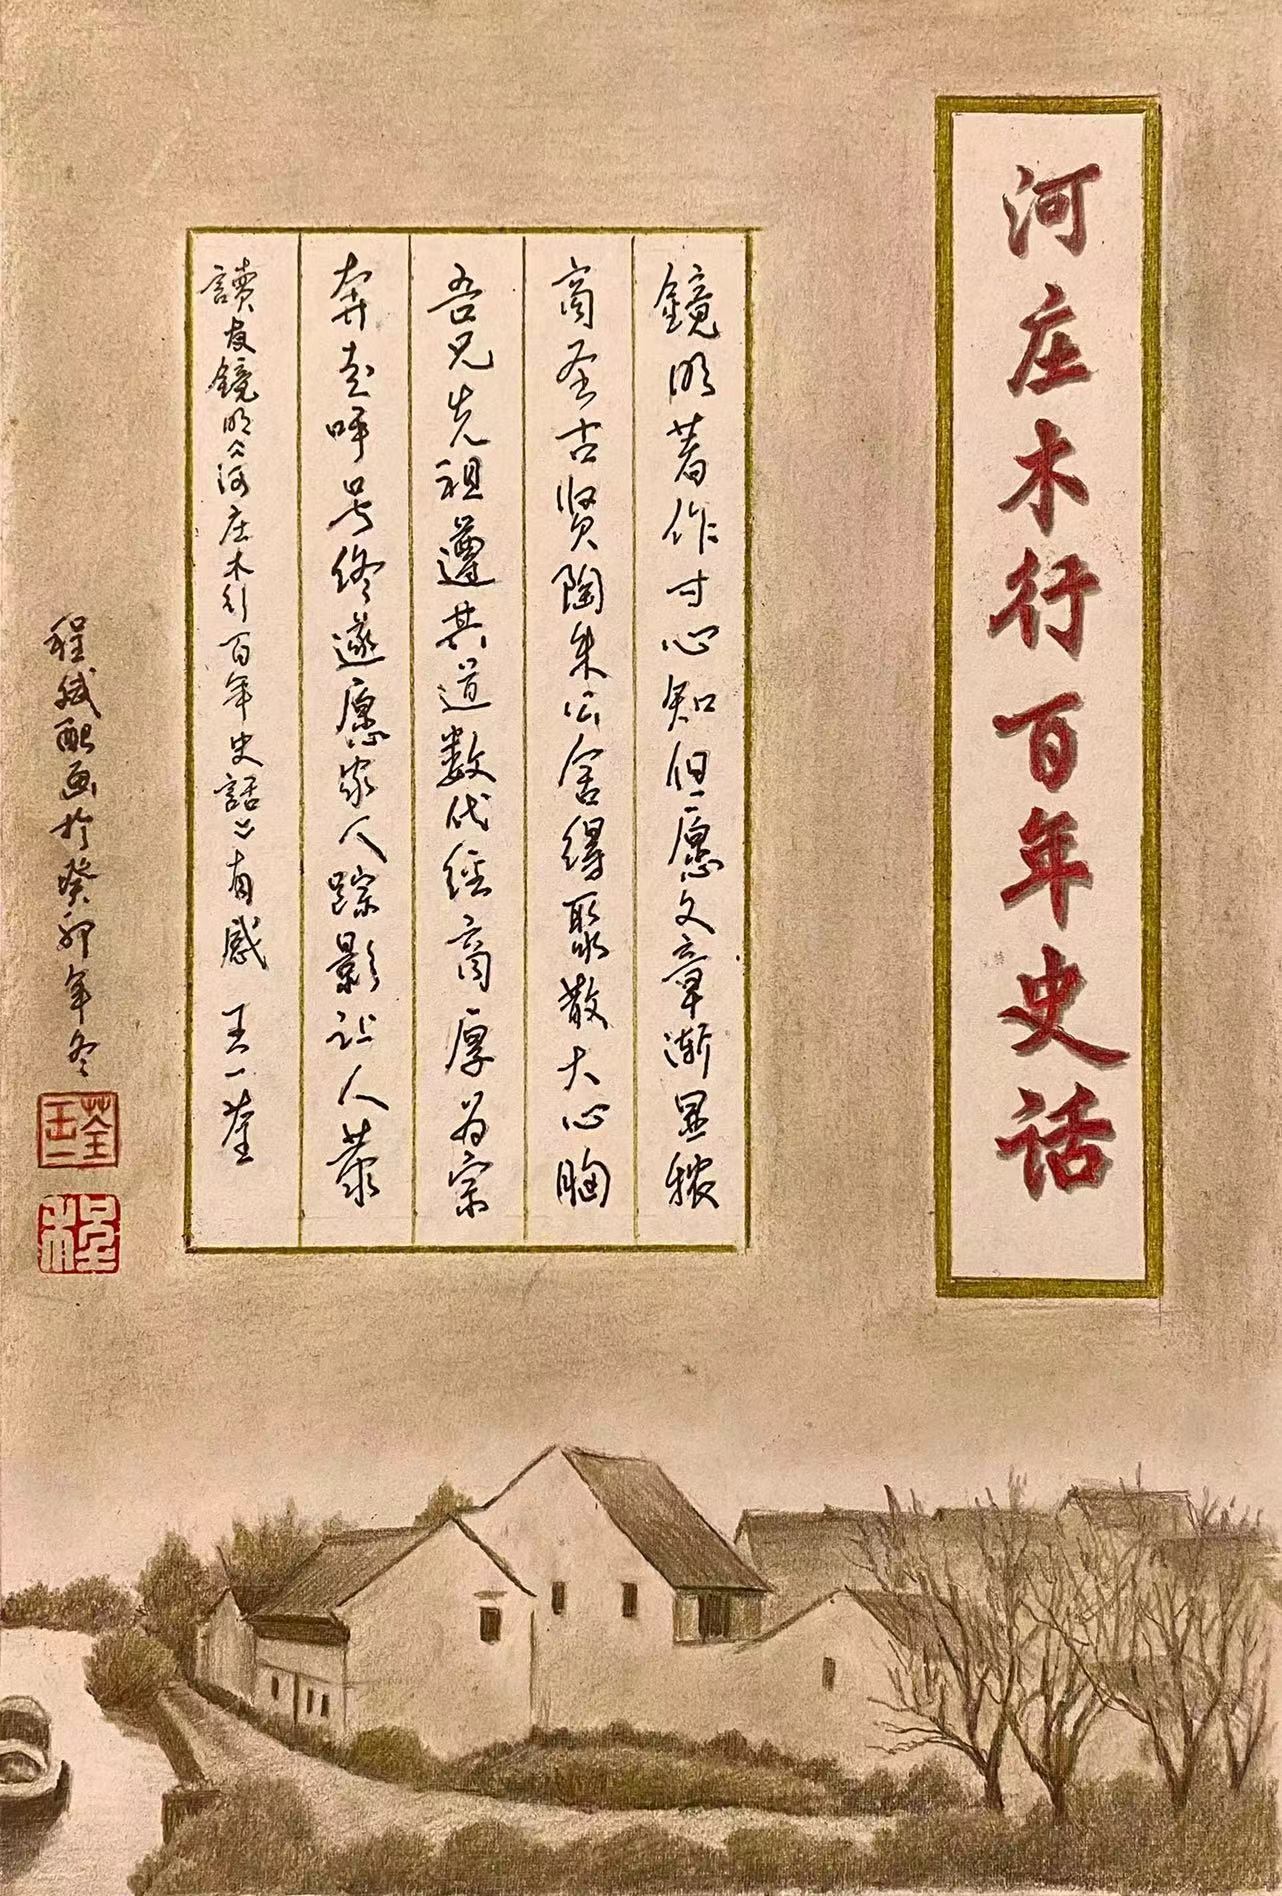 河庄木行百年史话
鏡明著作寸心知但愿文章渐显秾
商圣古贤陶朱公舍得聚散大心胸
吾兄先祖遵其道数代经商厚为宗
奔走呼号终遂愿家人踪影让人崇
讀友鏡明《河庄木行百年史話》有感 王一荃
程斌配画於癸卯年冬
王一荃
程